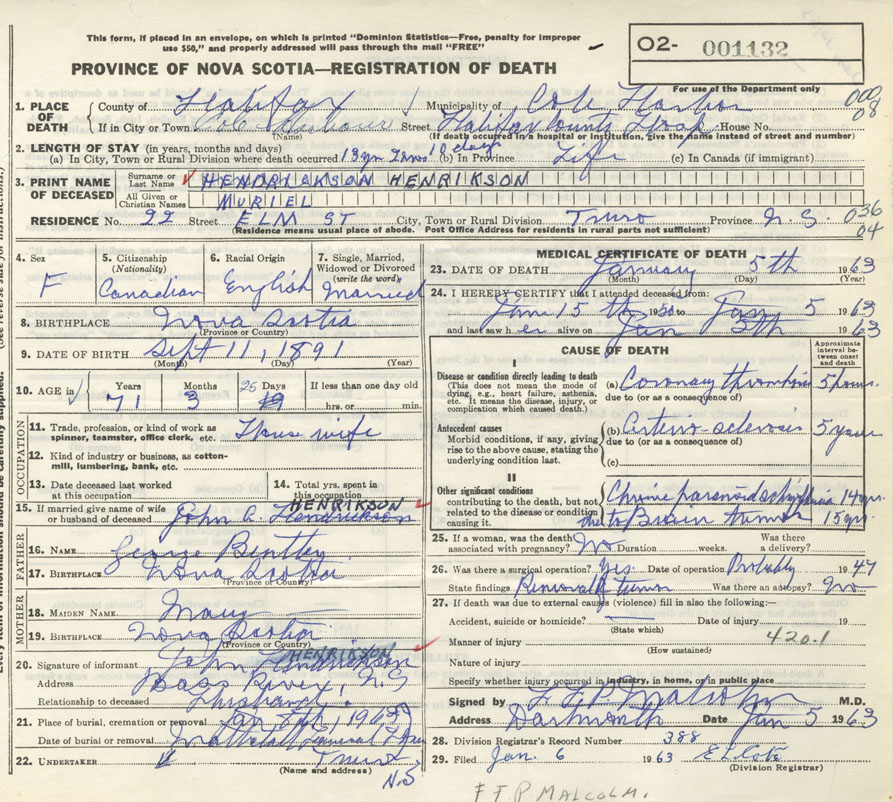 This form, if placed in an envelope, on which is printed "Dominion Statistics—Free, penalty for improper
use $50," and properly addressed will pass through the mail "FREE"
O2- 001132
PROVINCE OF NOVA SCOTIA—REGISTRATION OF DEATH
For use of the Department only
1. PLACE OF DEATH { County of Halifax Municipality of Cole Harbor 000
If in City or Town Cole Harbour Street Halifax County Hosp. House No. 08
(Name) (If death occurred in a hospital or institution, give the name instead of street and number)
2. LENGTH OF STAY (in years, months and days)
(a) In City, Town or Rural Division where death occurred 13 yrs 10 days (b) In Province Life (c) In Canada (if immigrant)
3. PRINT NAME OF DECEASED { Surname or Last Name HENDRICKSON HENRIKSON
All Given or Christian Names MURIEL
RESIDENCE No. 22 Street ELM ST City, Town or Rural Division Truro Province N.S. 036
(Residence means usual place of abode. Post Office Address for residents in rural parts not sufficient) 04
4. Sex F
5. Citizenship (Nationality) Canadian
6. Racial Origin English
7. Single, Married, Widowed or Divorced (write the word) Married
8. BIRTHPLACE Nova Scotia
(Province or Country)
9. DATE OF BIRTH Sept 11, 1891
(Month) (Day) (Year)
10. AGE in Years Months Days If less than one day old
71 3 25 19 hrs. or min.
OCCUPATION
11. Trade, profession, or kind of work as spinner, teamster, office clerk, etc. House wife
12. Kind of industry or business, as cotton-mill, lumbering, bank, etc.
13. Date deceased last worked at this occupation
14. Total yrs. spent in this occupation
15. If married give name of wife or husband of deceased John A. Hendrickson HENRIKSON
FATHER
16. NAME George Bentley
17. BIRTHPLACE Nova Scotia
(Province or Country)
MOTHER
18. MAIDEN NAME Mary
19. BIRTHPLACE Nova Scotia
(Province or Country)
20. Signature of informant John Hendrickson HENRIKSON
Address Bass River, N.S
Relationship to deceased Husband
21. Place of burial, cremation or removal Jan 1963
Date of burial or removal Mattatall Funeral
22. UNDERTAKER Truro
(Name and address) N.S
MEDICAL CERTIFICATE OF DEATH
23. DATE OF DEATH January 5th 1963
(Month) (Day) (Year)
24. I HEREBY CERTIFY that I attended deceased from:
15 th 1950 to Jan 5 1963
and last saw h er alive on Jan 5th 1963
CAUSE OF DEATH
Approximate interval between onset and death
I
Disease or condition directly leading to death
(This does not mean the mode of dying, e.g., heart failure, asthenia, etc. It means the disease, injury, or complication which caused death.)
(a) Coronary thrombosis 5 hours
due to (or as a consequence of)
Antecedent causes
Morbid conditions, if any, giving rise to the above cause, stating the underlying condition last.
(b) Arterio-sclerosis 5 years
due to (or as a consequence of)
(c)
II
Other significant conditions
contributing to the death, but not related to the disease or condition causing it.
Chronic paranoid schizophrenia 14 yrs.
due to Brain tumor 15 yrs.
25. If a woman, was the death associated with pregnancy? No Duration weeks. Was there a delivery?
26. Was there a surgical operation? Yes. Date of operation Probably 1947
State findings Removal of tumor Was there an autopsy? No
27. If death was due to external causes (violence) fill in also the following:—
Accident, suicide or homicide? Date of injury 19
(State which)
Manner of injury 420.1
(How sustained)
Nature of injury
Specify whether injury occurred in industry, in home, or in public place
Signed by F.F.P. Malcolm M.D.
Address Dartmouth Date Jan 5 1963
28. Division Registrar's Record Number 388
29. Filed Jan. 6 1963
(Division Registrar)
F.F.P. MALCOLM.